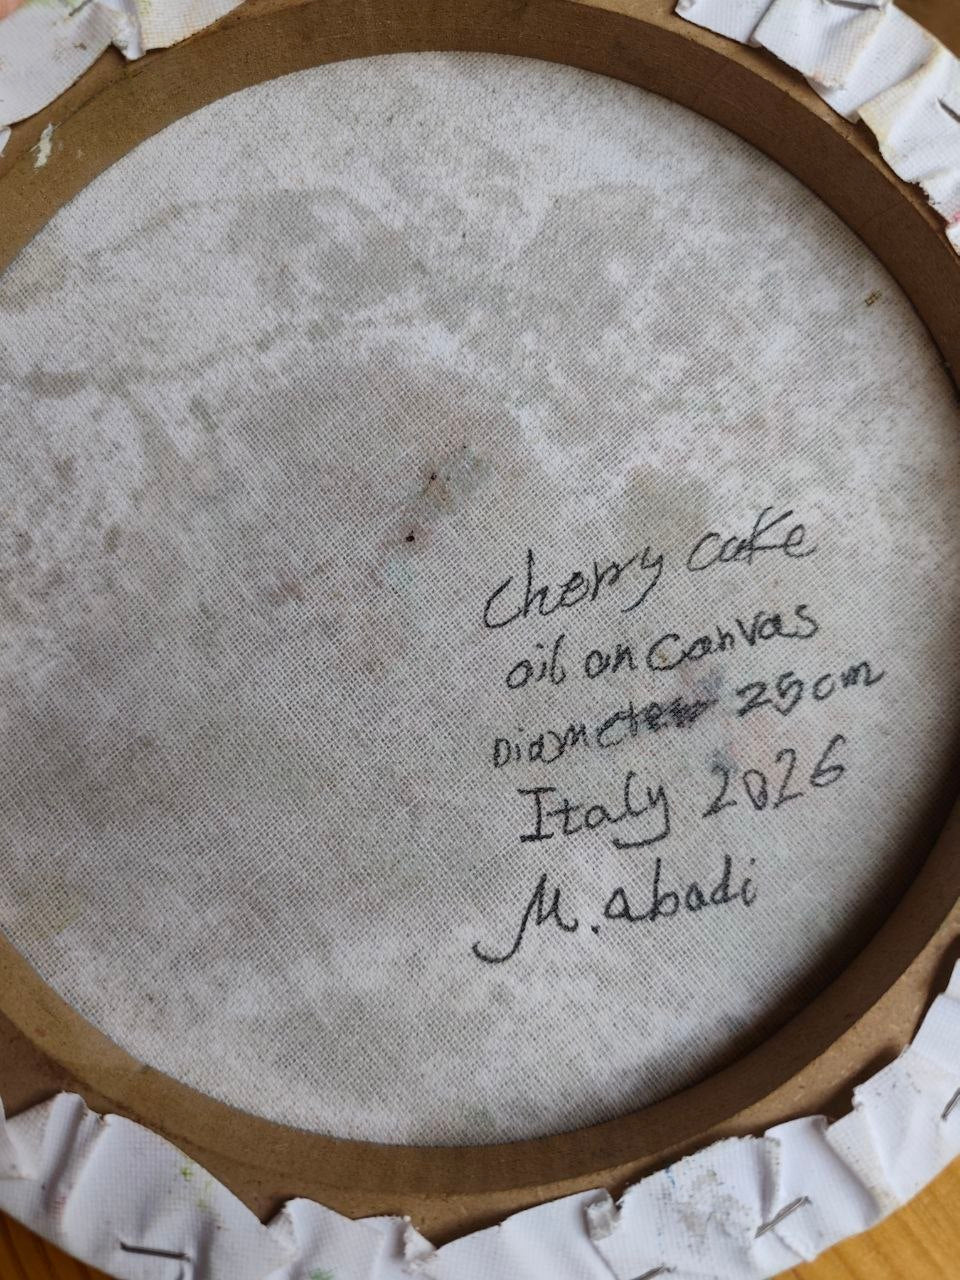 Cherry cake
oil on canvas
Diameter 25cm
Italy 2026
M. abadi